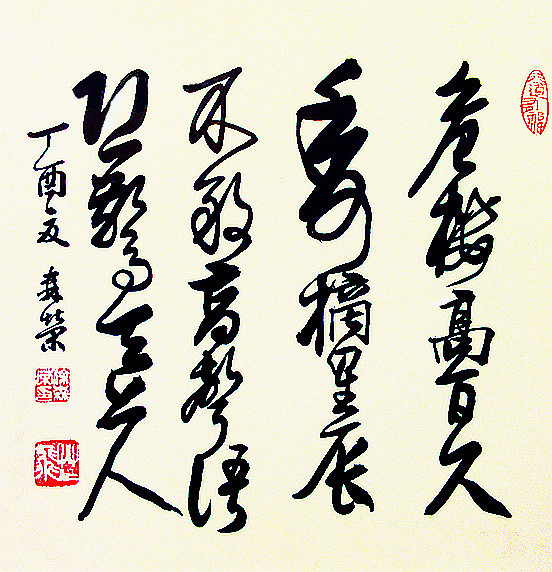 危樓高百尺
手可摘星辰
不敢高聲語
恐驚天上人
丁酉夏 森榮